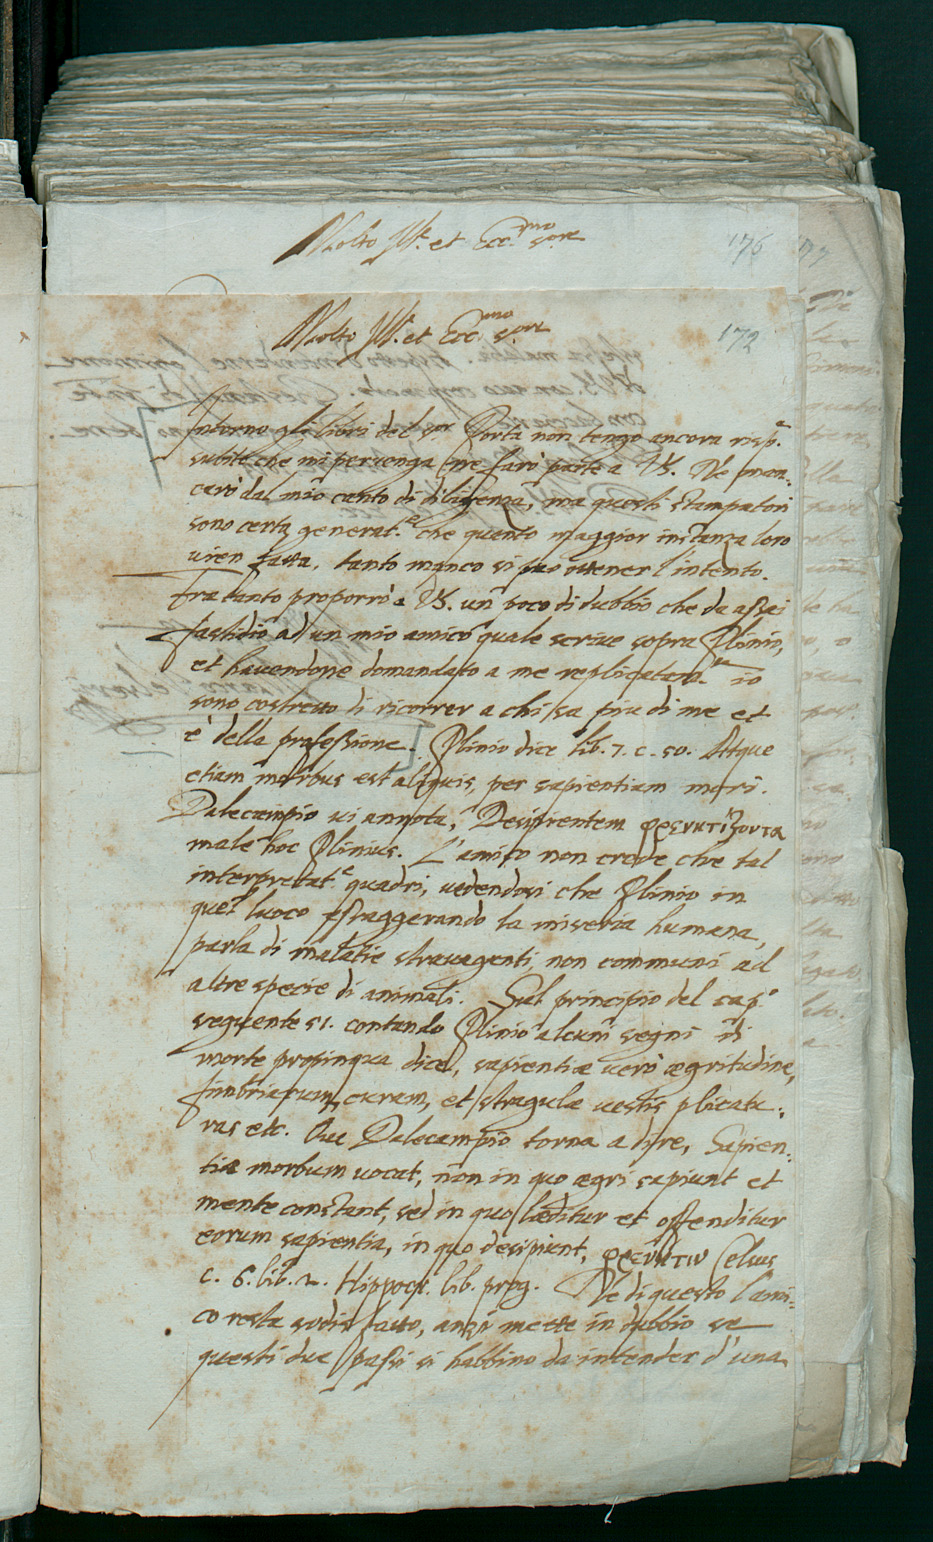 Molto Ill.e et Ecc.mo s.ore
176
177
Molto Ill.e et Ecc.mo s.ore
172
Intorno gli libri del s.or Porta non tengo ancora risp.a
subito che mi pervenga ne farò parte a VS. Ne man-
carò dal mio canto di diligenza, ma questi stampatori
sono certa generat.e che quanto maggior instanza loro
vien fatta, tanto manco si può ottener l'intento.
Fra tanto proporrò a VS. un poco di dubbio che da assai
fastidio ad un mio amico quale scrive sopra Plinio,
et havendone domandato a me io
sono costretto di ricorrer a chi sa piu di me et
è della professione. Plinio dice lib. 7. c. 50. Atque
etiam morbus est aliquis, per sapientiam mori.
Dalecampio vi annota, Desipientem φρενητίζοντα
male hoc Plinius. L'amico non crede che tal
interpretat.e quadri, vedendosi che Plinio in
quel luoco essaggerando la miseria humana,
parla di malatie stravaganti non communi ad
altre specie di animali. Sul principio del cap.o
seguente 51. contando Plinio alcuni segni di
morte propinqua dice, sapientiæ verò ægritudine,
fimbriarum curam, et stragulæ vestis plicatu-
ras etc. Ove Dalecampio torna a dire, Sapien-
tiæ morbum vocat, non in quo ægri sapiunt et
mente constant, sed in quo læditur et offenditur
eorum sapientia, in quo desipiunt, φρενῖτιν Celsus
c. 6. lib. 2. Hippocr. lib. prog. Ne di questo l'ami-
co resta sodisfatto, anzi mette in dubbio se
questi due passi si habbino da intender d'una